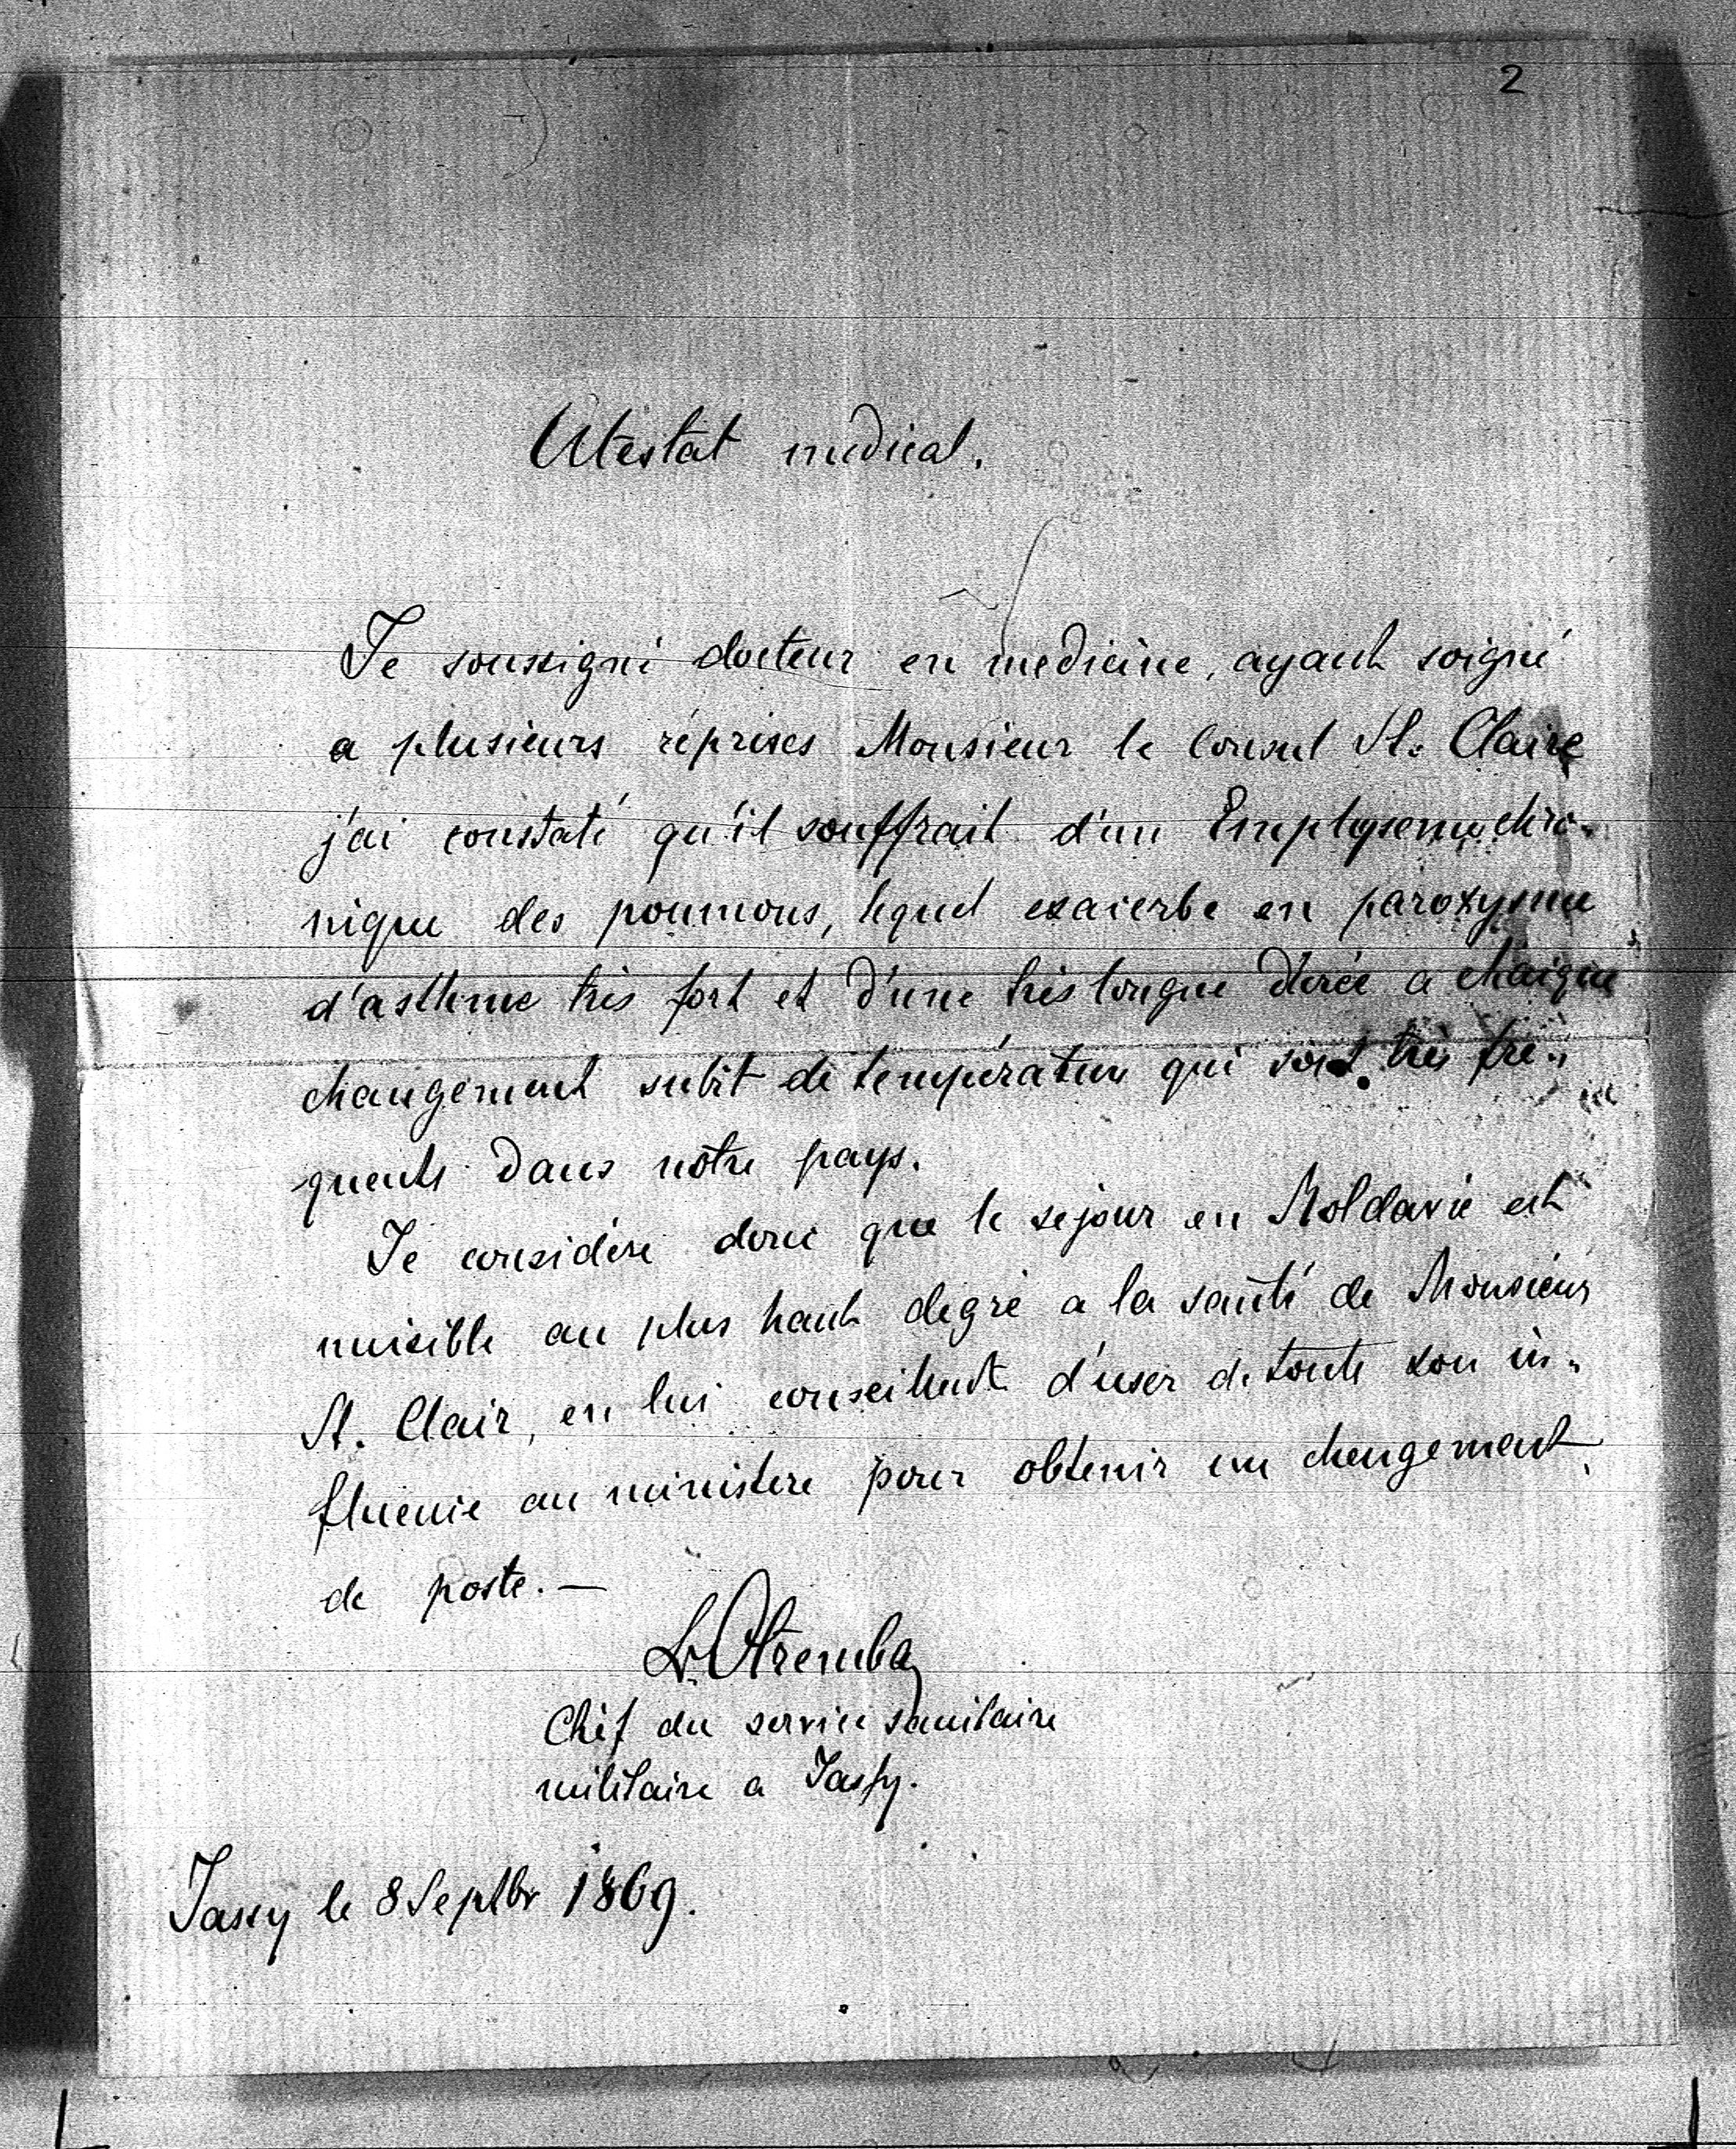 2
Atestat medical.
Je soussigné docteur en medicine, ayant soigné
a plusieurs réprises Monsieur le Consul St. Claire
j'ai constaté qu'il souffrait d'un Emphyseme chro-
nique des poumons, lequel exacerbe en paroxysme
d'asthme très fort et d'une très longue durée a chaique
changement subit de température qui sont très fre-
quents dans nôtre pays.
Je considére donc que le sejour en Moldavie est
nuisible au plus haut degré a la santé de Monsieur
St. Clair, en lui conseillant d'user de toute son in-
fluence au ministere pour obtenir un changement
de poste.—
Dr. Otremba
Chef du service sanitaire
militaire a Jassy.
Jassy le 8 Septbr 1869.